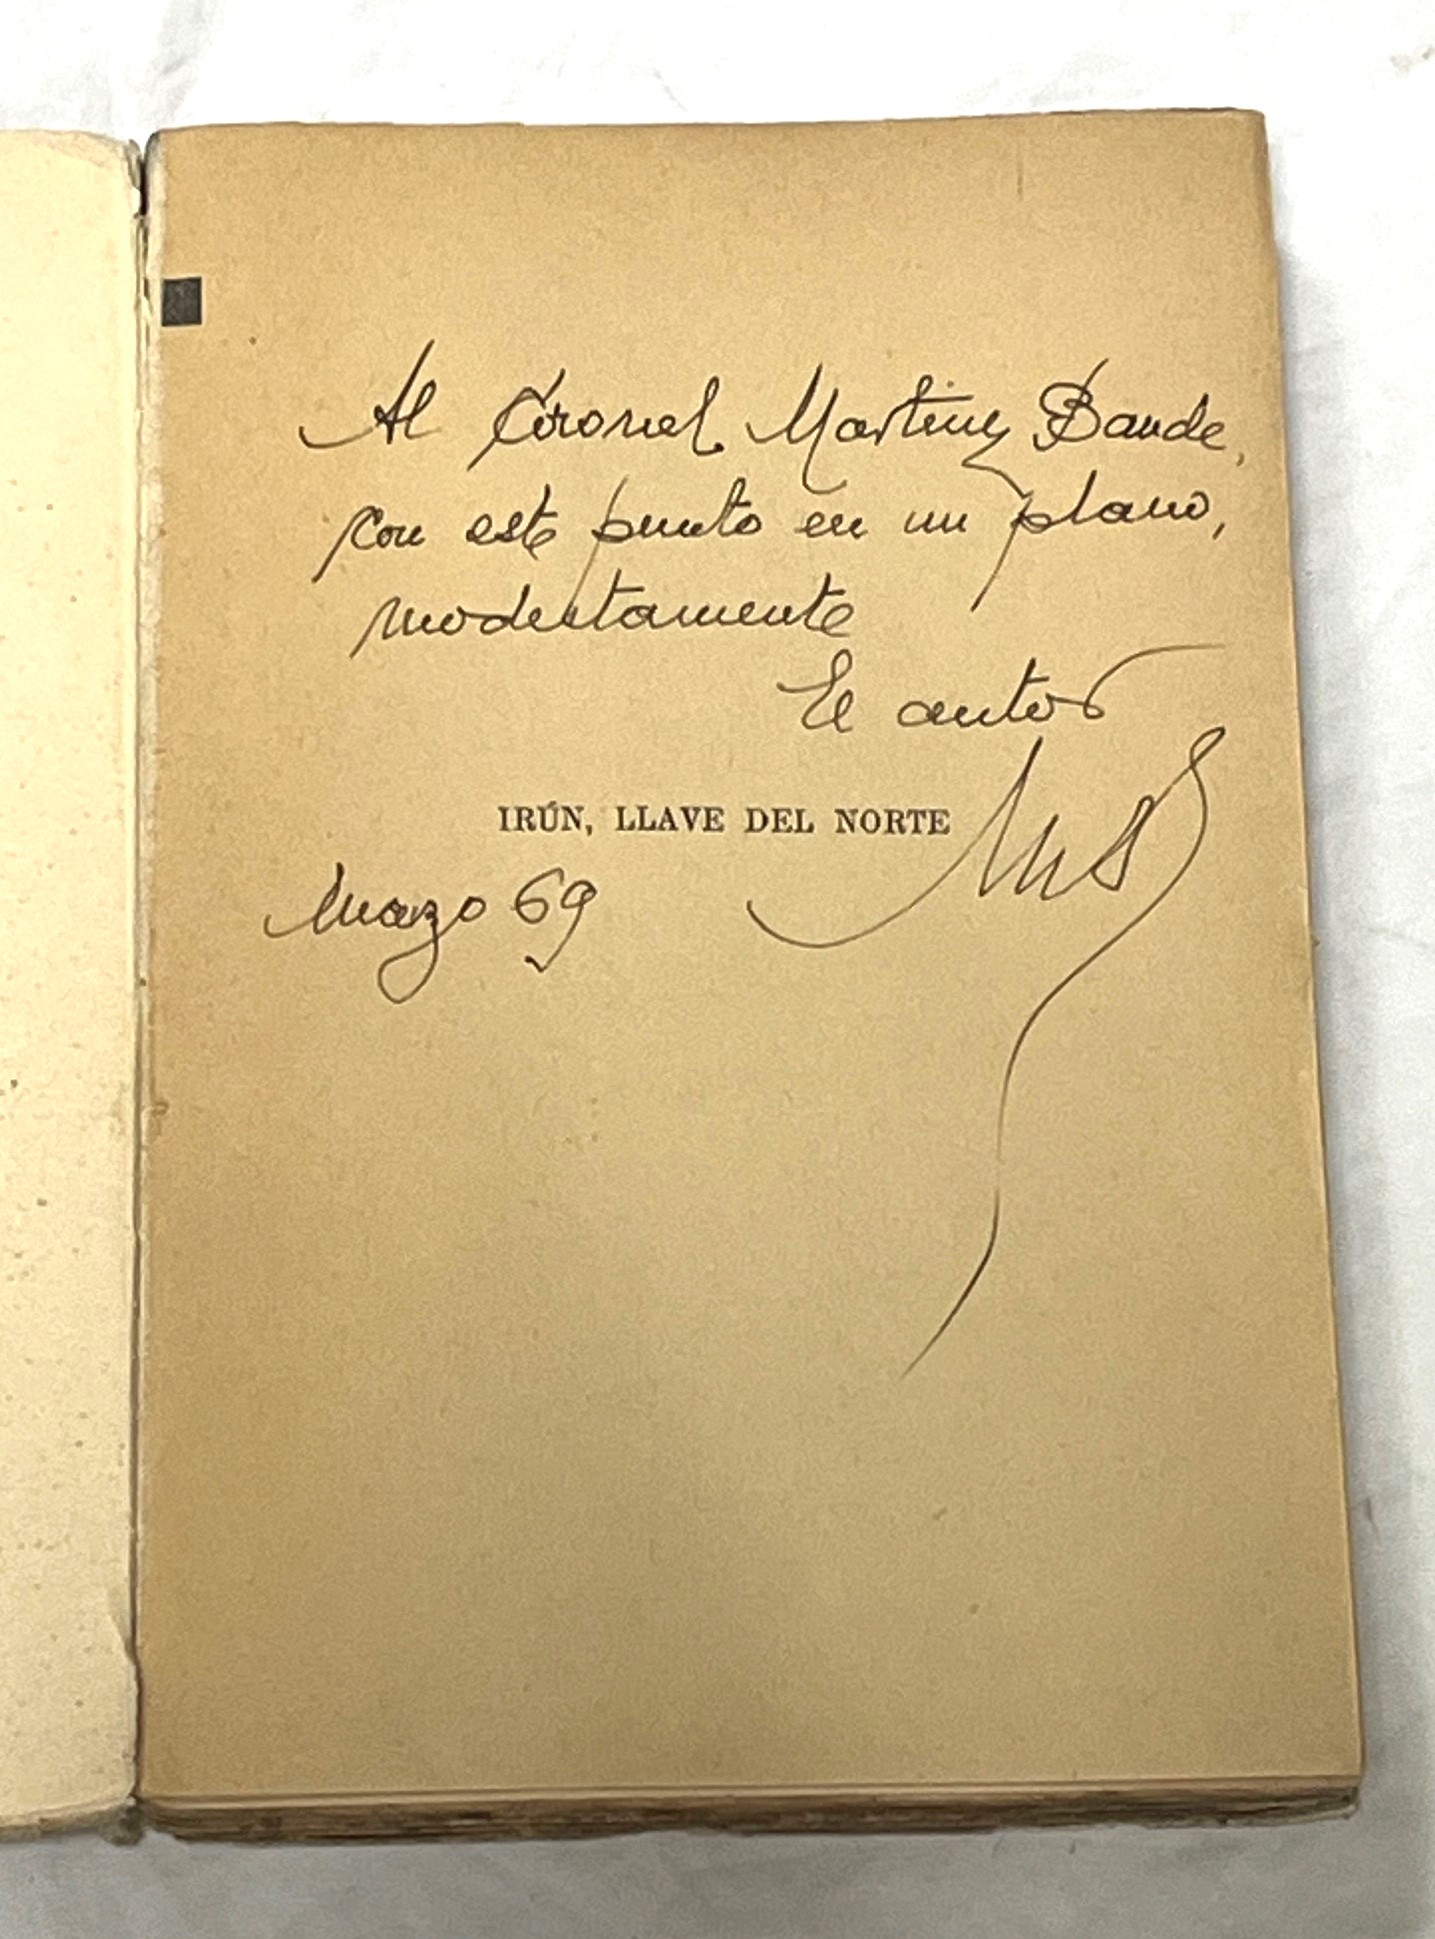 Al Coronel Martinez Bande,
con este punto en un plano,
modestamente
El autor
IRÚN, LLAVE DEL NORTE
Marzo 69